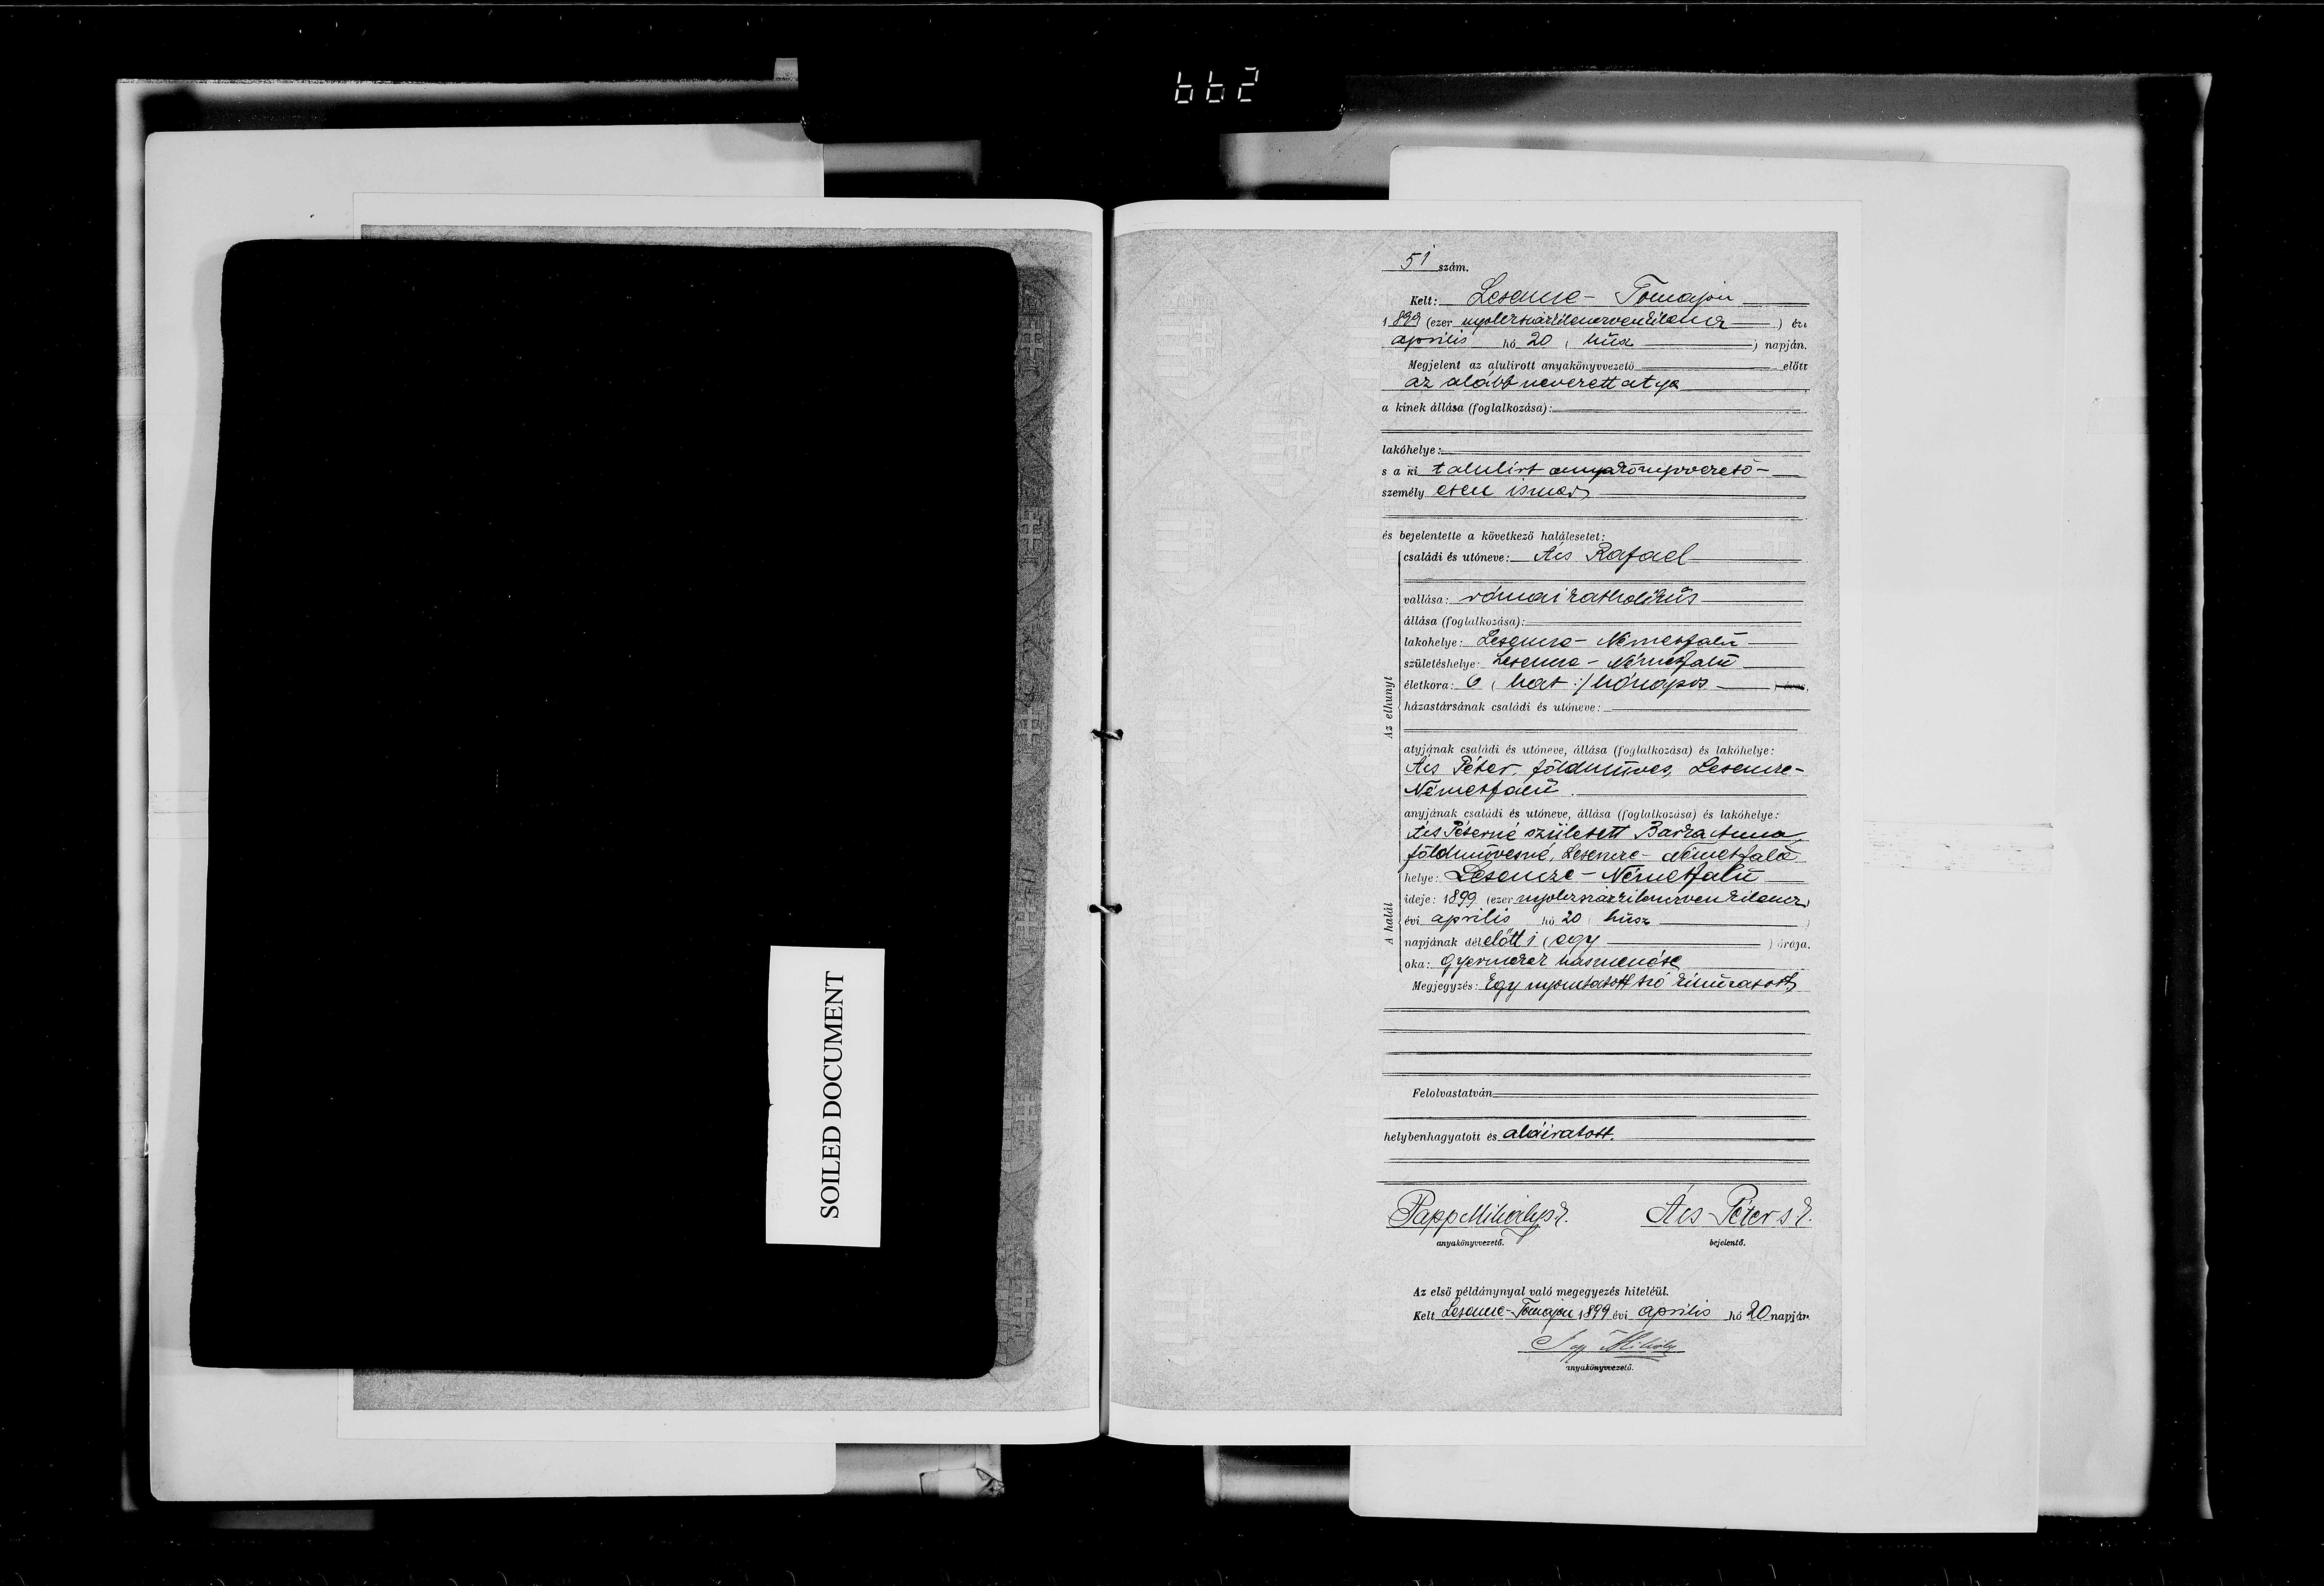 662
SOILED DOCUMENT
51 szám.
Kelt: Lesencze-Tomajon
1899 (ezer nyolczszázkilenczvenkilencz) évi
április hó 20 (húsz) napján.
Megjelent az alulírott anyakönyvvezető előtt
az alább nevezett atya
a kinek állása (foglalkozása):
lakóhelye:
s a ki t alulírt anyakönyvvezető
személyesen ismer,
és bejelentette a következő halálesetet:
Az elhunyt
családi és utóneve: Ács Rafael
vallása: római katholikus
állása (foglalkozása):
lakóhelye: Lesencze-Németfalu
születéshelye: Lesencze-Németfalu
életkora: 6 (hat:) hónapos
házastársának családi és utóneve:
atyjának családi és utóneve, állása (foglalkozása) és lakóhelye:
Ács Péter, földmüves, Lesencze-
Németfalu
anyjának családi és utóneve, állása (foglalkozása) és lakóhelye:
Ács Péterné született Barka Anna,
földmüvesné, Lesencze-Németfalu
A halál
helye: Lesencze-Németfalu
ideje: 1899 (ezer nyolczszázkilenczvenkilencz)
évi április hó 20 (húsz)
napjának délelőtti (egy) órája.
oka: gyermekek hasmenése
Megjegyzés: Egy nyomtatott szó kihúzatott,
Felolvastatván
helybenhagyatott és aláiratott.
Papp Mihály s.k. Ács Péter s.k.
anyakönyvvezető. bejelentő.
Az első példánynyal való megegyezés hiteléül.
Kelt Lesencze-Tomajon 1899 évi április hó 20 napján
Papp Mihály
anyakönyvvezető.